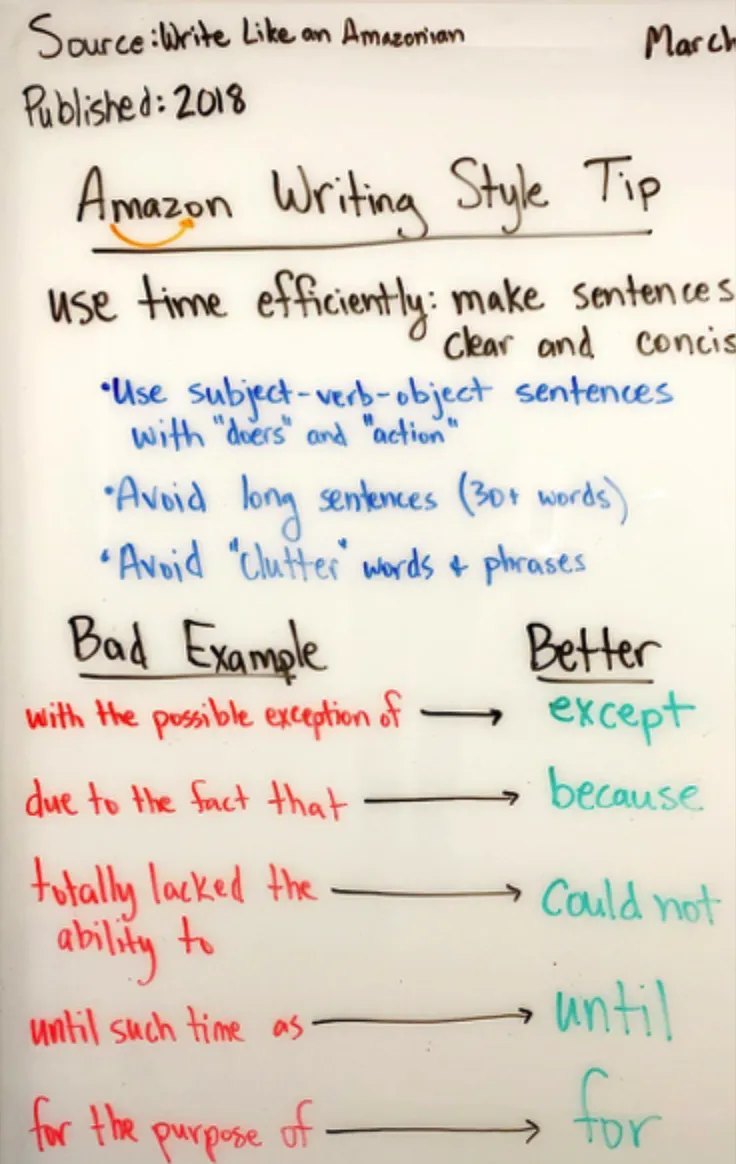 Source: Write Like an Amazonian March
Published: 2018
Amazon Writing Style Tip
use time efficiently: make sentences
clear and concis
•Use subject-verb-object sentences
with "doers" and "action"
•Avoid long sentences (30+ words)
•Avoid "Clutter" words + phrases
Bad Example Better
with the possible exception of → except
due to the fact that → because
totally lacked the → Could not
ability to
until such time as → until
for the purpose of → for